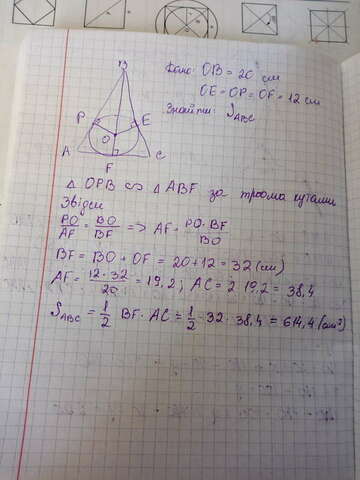 B
Дано: OB = 20 см
OE = OP = OF = 12 см
Знайти: S_ABC
P E
O
A C
F
Δ OPB ∽ Δ ABF за двома кутами
Звідси
PO/AF = BO/BF => AF = PO·BF/BO
BF = BO + OF = 20+12 = 32 (см)
AF = 12·32/20 = 19,2; AC = 2 19,2 = 38,4
S_ABC = 1/2 BF·AC = 1/2·32·38,4 = 614,4 (см²)